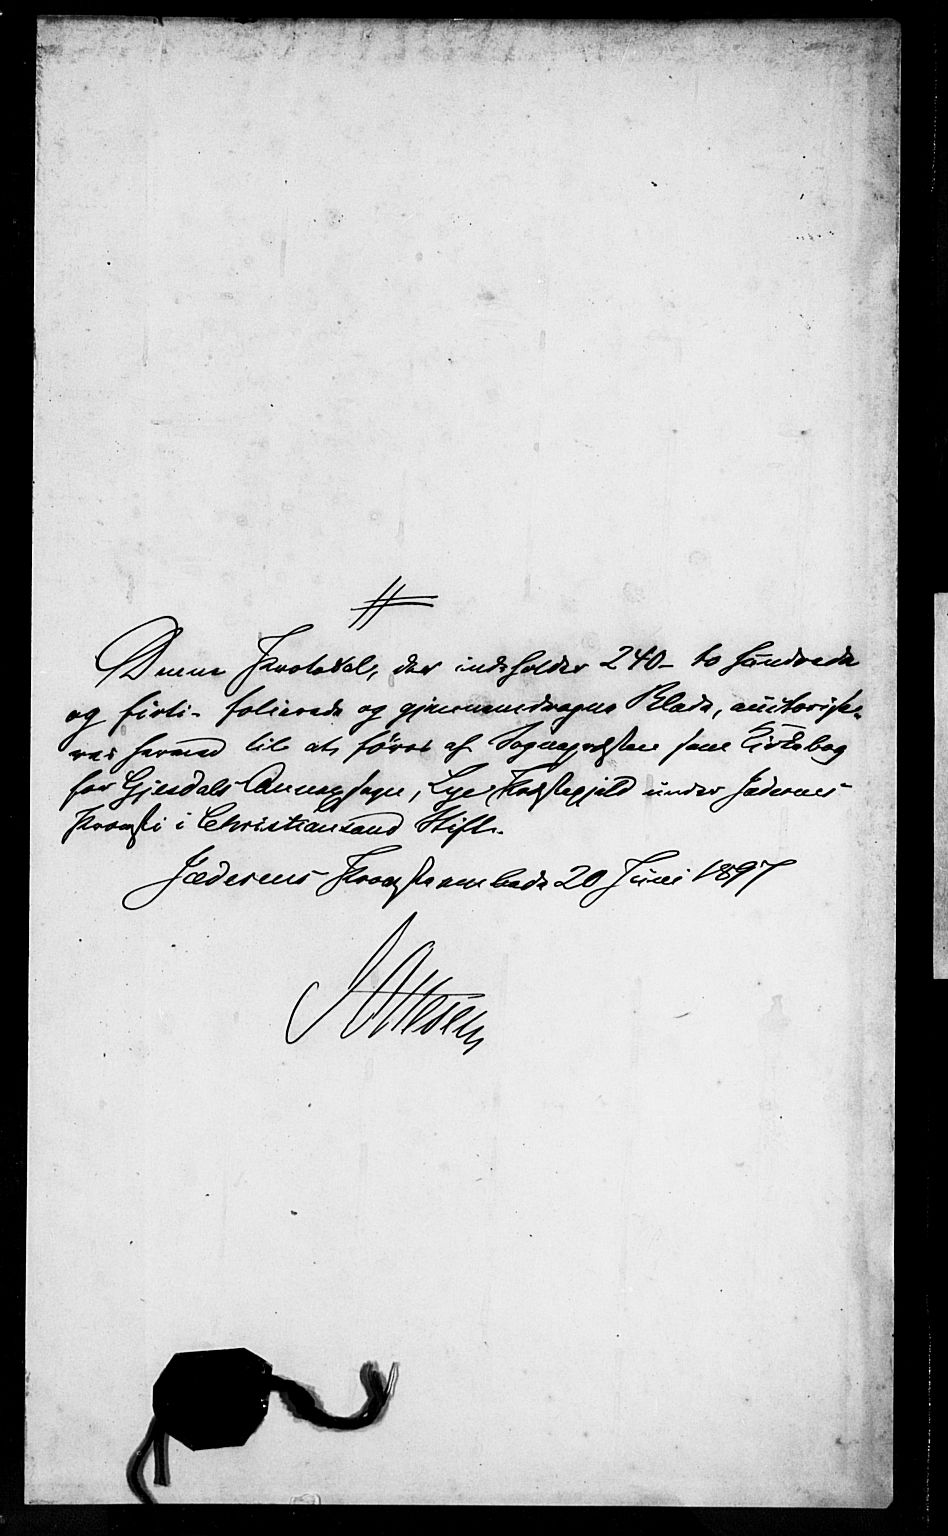 Denne Protokol, der indeholder 240 - to hundrede
og firti - folierede og gjennemdragne Blade, auithorise-
res herved til at føres af Sognepræsten som Kirkebog
for Gjesdals Annexsogn, Lye Præstegjeld under Jæderens
Provsti i Christiansand Stift.
Jæderens Provsteembede 20 Juni 1897
Ottesen